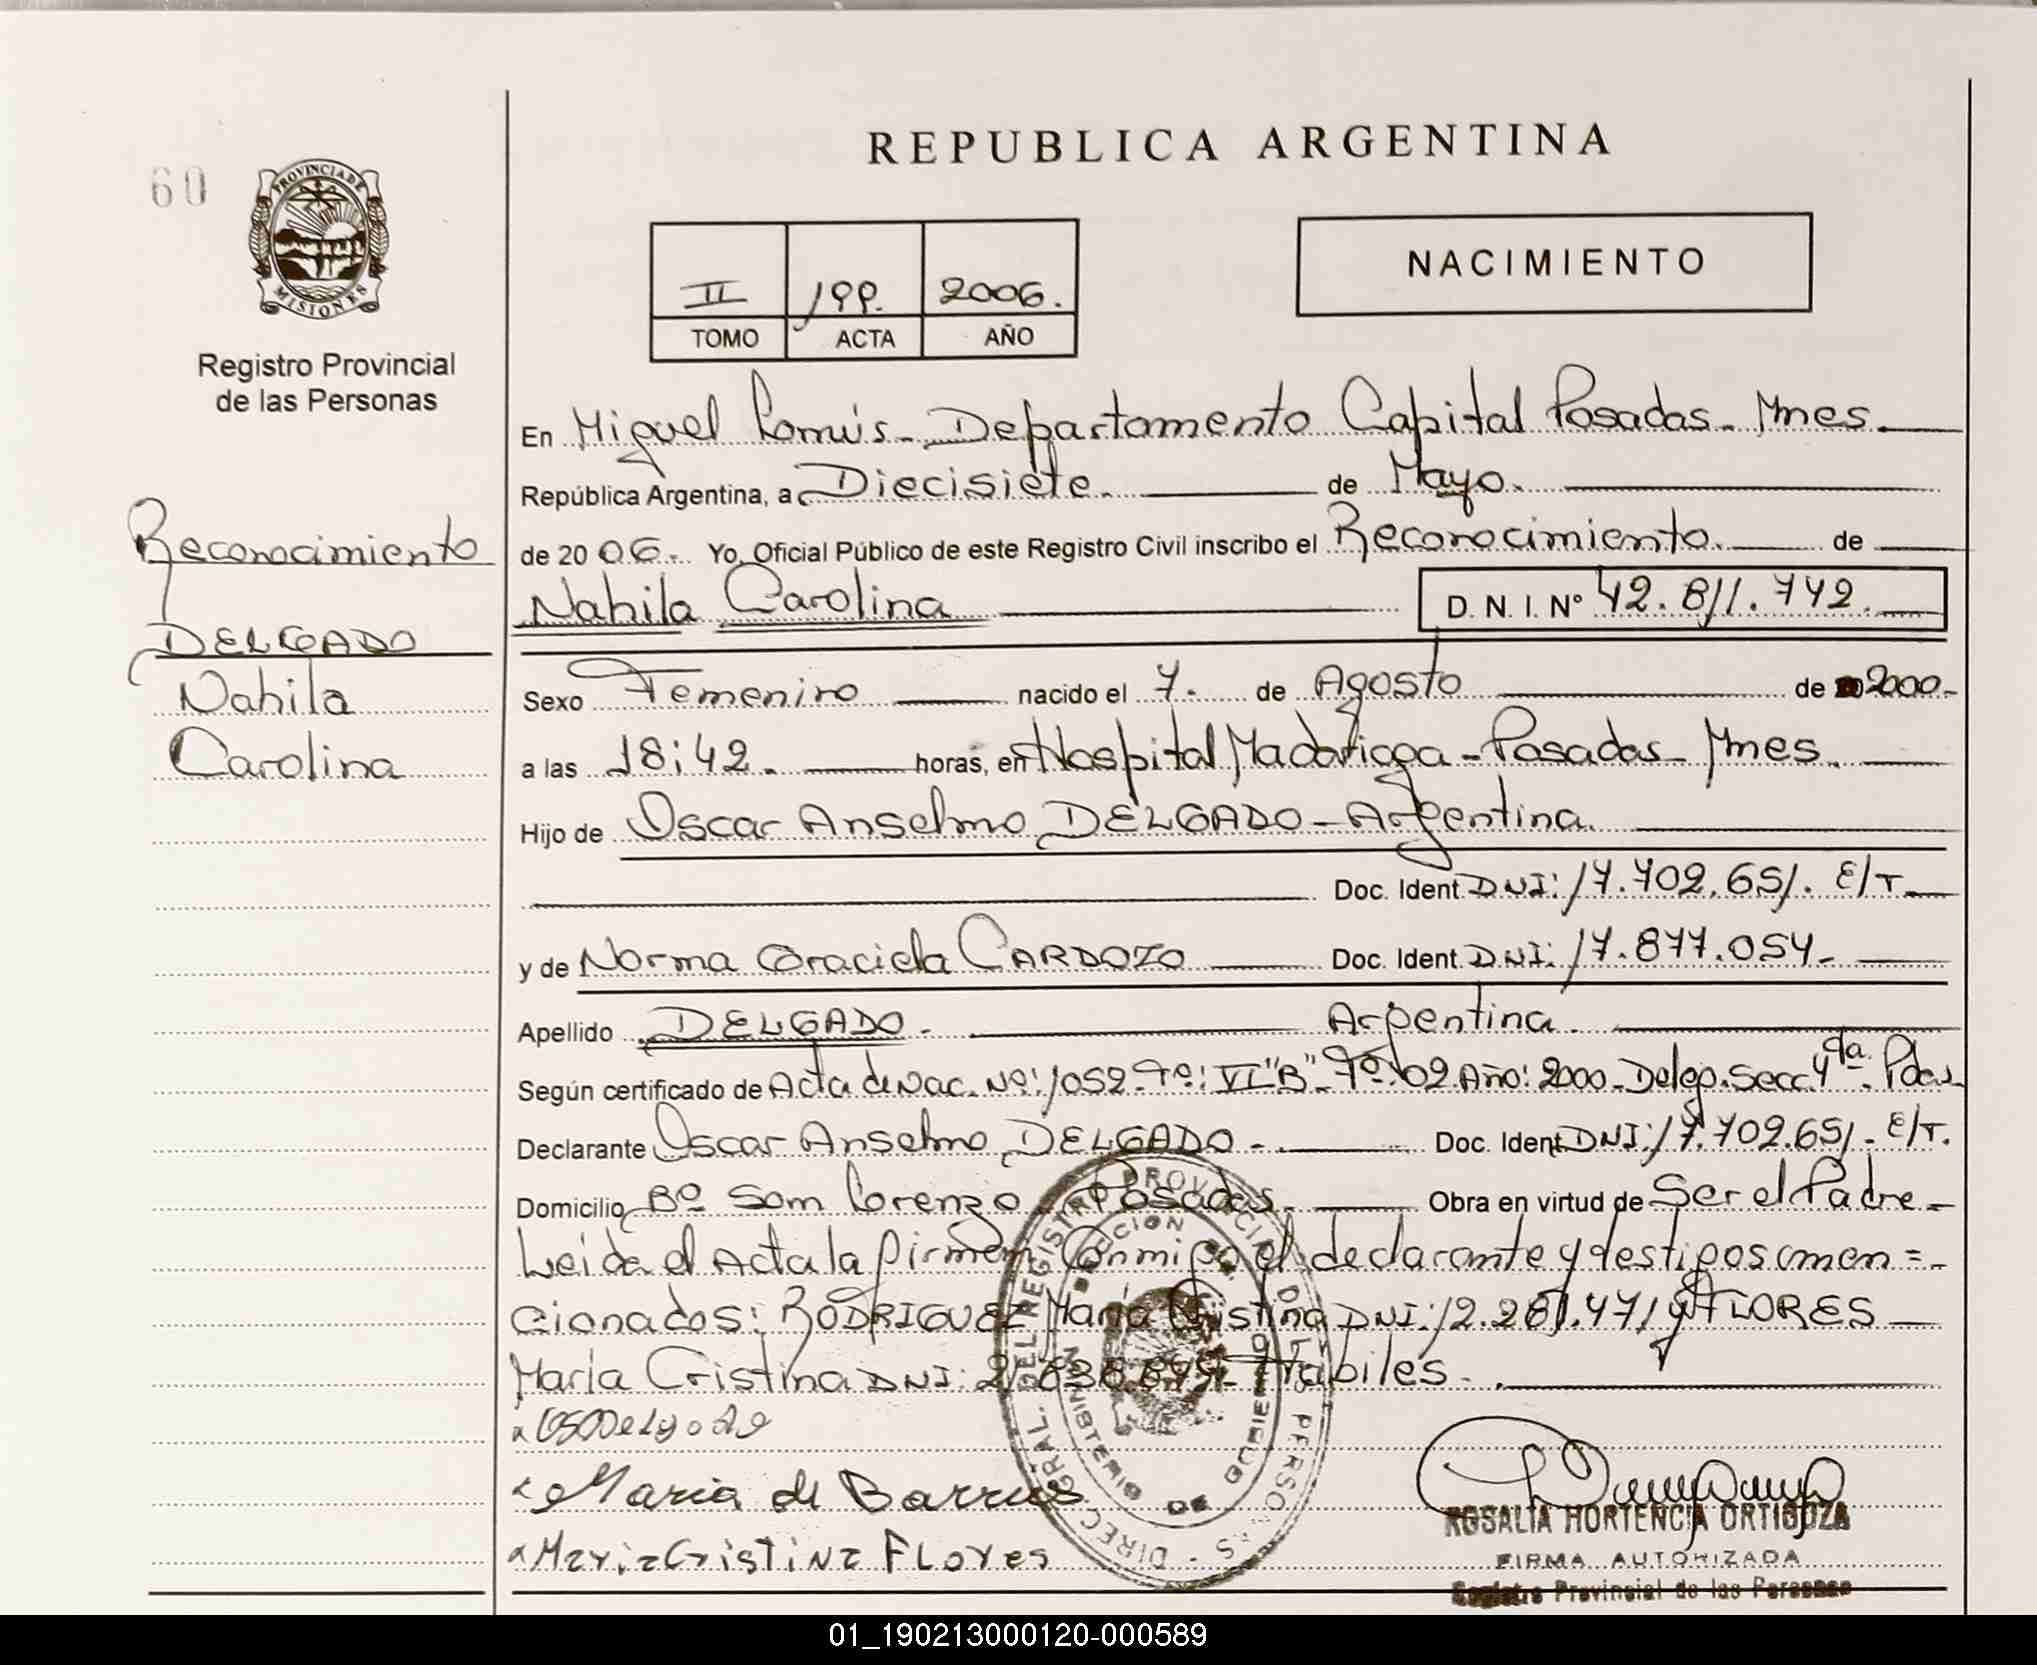 REPUBLICA ARGENTINA
60
PROVINCIA DE
MISIONES
Registro Provincial
de las Personas
II 199. 2006.
TOMO ACTA AÑO
NACIMIENTO
En Miguel Lanús - Departamento Capital Posadas - Mnes
República Argentina, a Diecisiete. de Mayo.
de 2006. Yo, Oficial Público de este Registro Civil inscribo el Reconocimiento. de
Nahila Carolina D. N. I. Nº 42.811.742.
Reconocimiento
DELGADO
Nahila
Carolina
Sexo Femenino nacido el 7. de Agosto de 2000.-
a las 18:42. horas, en Hospital Madariaga - Posadas - Mnes.
Hijo de Oscar Anselmo DELGADO - Argentina.
Doc. Ident. DNI: 17.702.651. E/T.
y de Norma Graciela CARDOZO Doc. Ident. DNI: 17.877.054.-
Apellido DELGADO.- Argentina.
Según certificado de Acta de Nac. Nº: 1052 - Tº: VI "B" - Fº: 02. Año: 2000 - Deleg. Secc 4ta. Pdas
Declarante Oscar Anselmo DELGADO.- Doc. Ident. DNI: 17.702.651.- E/T.
Domicilio Bº San Lorenzo Posadas. Obra en virtud de Ser el Padre.-
Leida el Acta la firman Conmigo el declarante y testigos men =
cionados: RODRIGUEZ María Cristina DNI: 12.2 .471 y FLORES
María Cristina DNI: Habiles.
Maria de
Maria Cristina Flores
DIREC. GRAL. DEL REGISTRO PROVINCIAL DE LAS PERSONAS
MINISTERIO DE GOBIERNO
ROSALIA HORTENCIA ORTIGOZA
FIRMA AUTORIZADA
Registro Provincial de las Personas
01_190213000120-000589